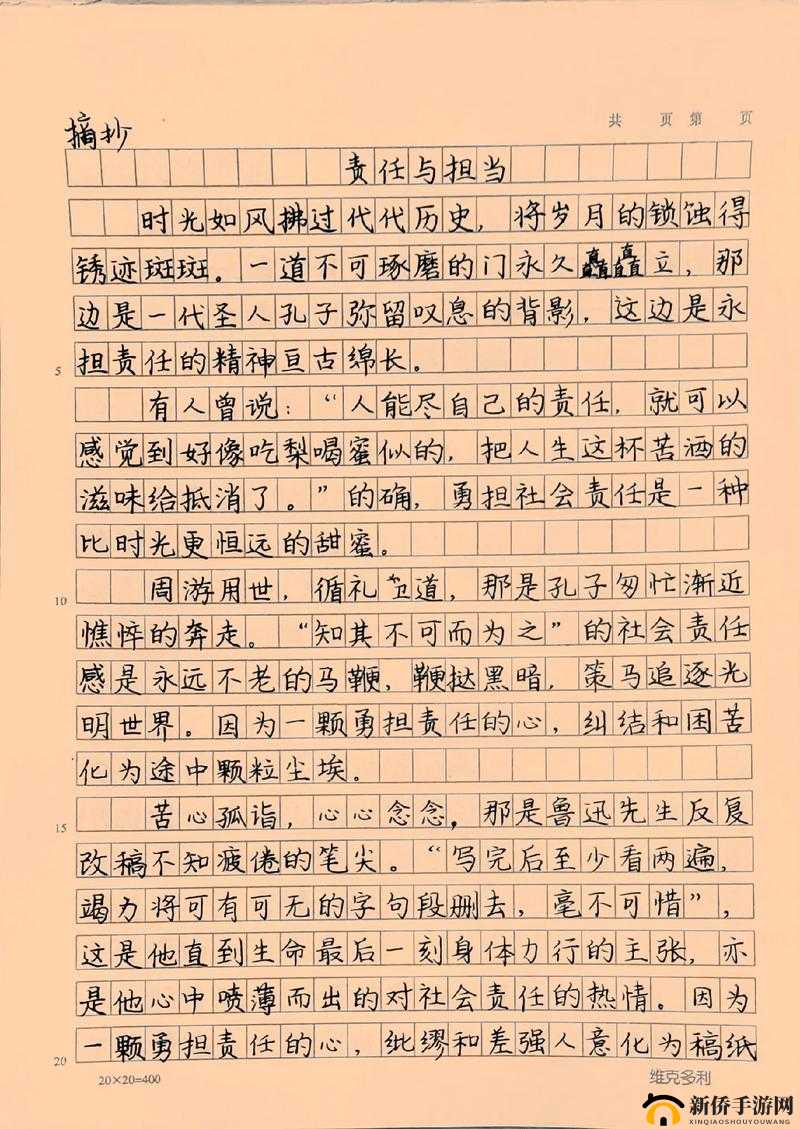 共 页 第 页
摘抄
责任与担当
时光如风拂过代代历史，将岁月的锁蚀得
锈迹斑斑。一道不可琢磨的门永久矗矗立，那
边是一代圣人孔子弥留叹息的背影，这边是永
担责任的精神亘古绵长。
5
有人曾说：“人能尽自己的责任，就可以
感觉到好像吃梨喝蜜似的，把人生这杯苦酒的
滋味给抵消了。”的确，勇担社会责任是一种
比时光更恒远的甜蜜。
周游用世，循礼卫道，那是孔子匆忙渐近
10
憔悴的奔走。“知其不可而为之”的社会责任
感是永远不老的马鞭，鞭挞黑暗，策马追逐光
明世界。因为一颗勇担责任的心，纠结和困苦
化为途中颗粒尘埃。
苦心孤诣，心心念念，那是鲁迅先生反复
15
改稿不知疲倦的笔尖。“写完后至少看两遍，
竭力将可有可无的字句段删去，毫不可惜”，
这是他直到生命最后一刻身体力行的主张，亦
是他心中喷薄而出的对社会责任的热情。因为
一颗勇担责任的心，纰缪和差强人意化为稿纸
20
20×20=400
维克多利
新侨手游网
XINQIAOSHOUYOUWANG